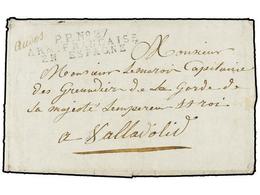 P.P. Nº 27
ARM. FRANÇAISE
EN ESPAGNE
Monsieur
Monsieur Lemarois Capitaine
des Grenadier de la Garde de
sa majesté Lempereur et roi
a Valladolid